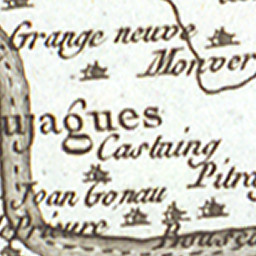 Grange neuve
Monver
ujagues
Castaing
Pitra
Joan Gonau
Prieure
Rousse